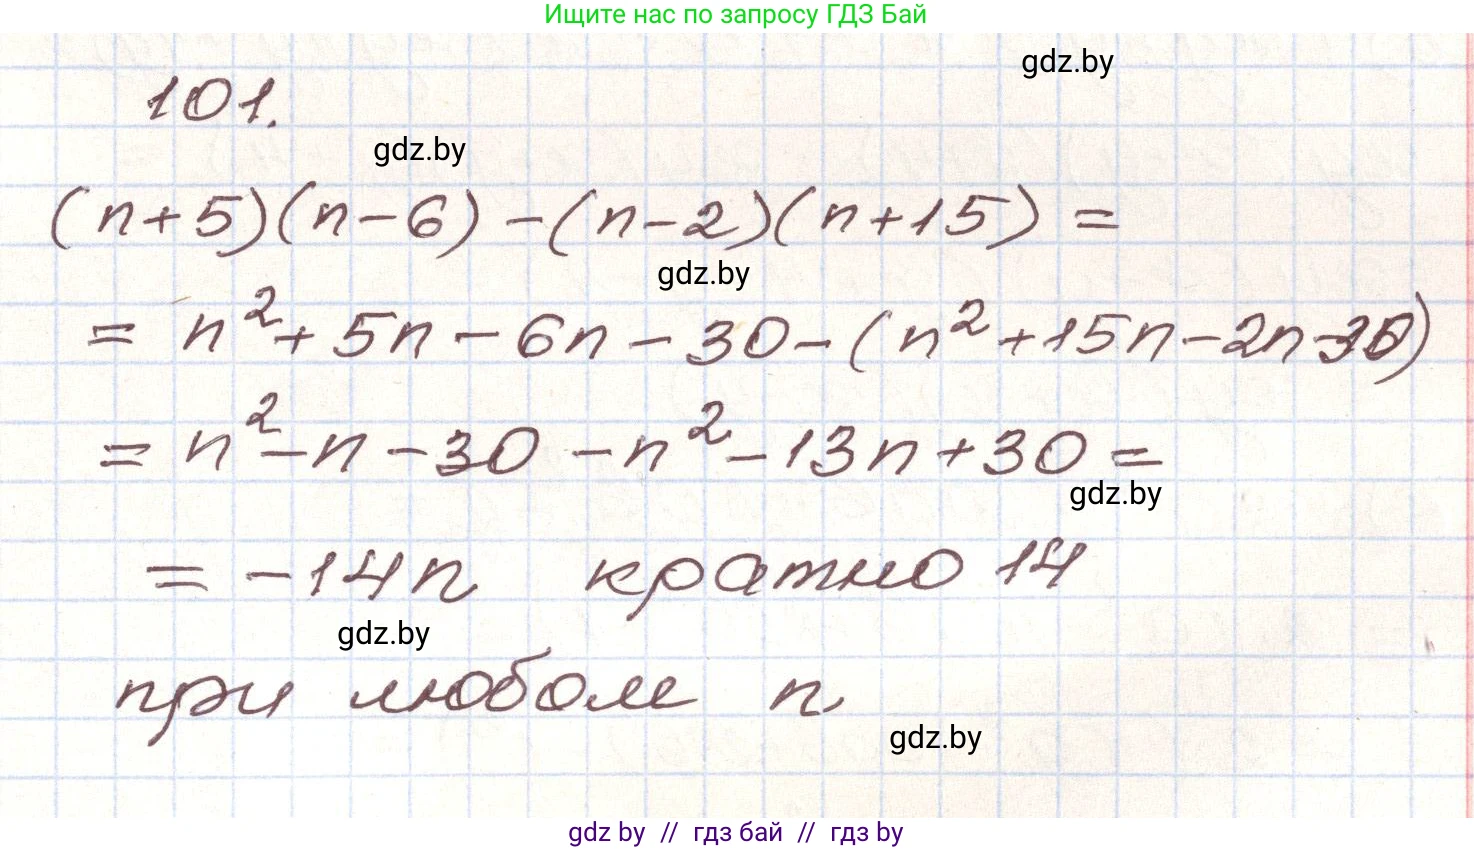 Ищите нас по запросу ГДЗ Бай
gdz.by
101.
gdz.by
(n+5)(n-6)-(n-2)(n+15)=
gdz.by
= n²+5n-6n-30-(n²+15n-2n-30)
= n²-n-30-n²-13n+30=
gdz.by
= -14n кратно 14
gdz.by
при любом n.
gdz.by
gdz by // гдз бай // гдз by